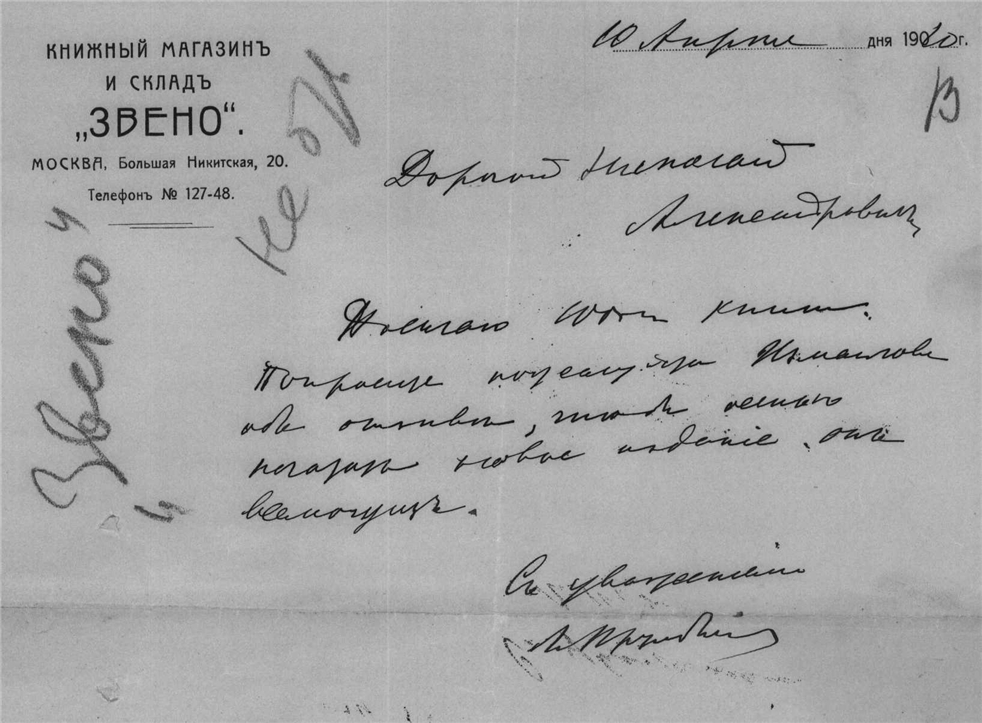 КНИЖНЫЙ МАГАЗИНЪ
И СКЛАДЪ
„ЗВЕНО“.
МОСКВА, Большая Никитская, 20.
Телефонъ № 127-48.
10 Апреля дня 1910 г.
Дорогой
Александровичъ
Посылаю книги.
Попросите пожалуйста Измайлова
объ отзыве, чтобъ
новое изданіе. онъ
всемогущъ.
Съ уваженіемъ
„Звено“